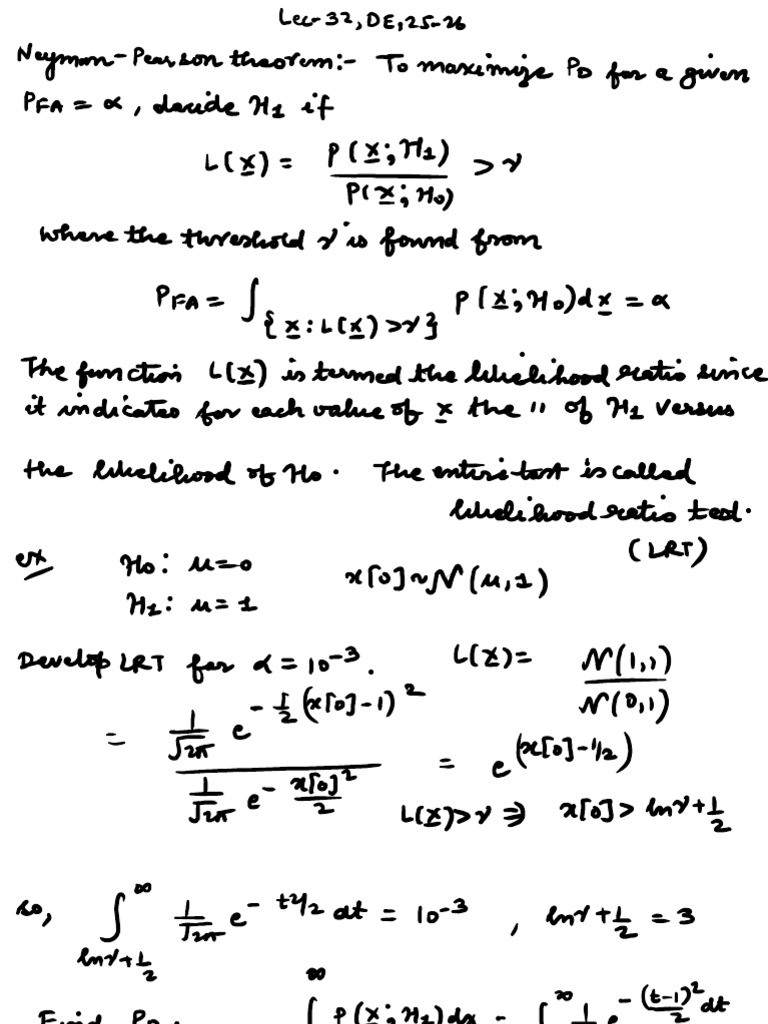 Lec-32, DE, 25-26
Neyman-Pearson theorem:- To maximize P_D for a given
P_FA = α, decide H1 if
L(x) = P(x; H1) / P(x; H0) > γ
where the threshold γ is found from
P_FA = ∫_{x: L(x) > γ} P(x; H0) dx = α
The function L(x) is termed the likelihood ratio since
it indicates for each value of x the " of H1 versus
the likelihood of H0. The entire test is called
likelihood ratio test.
(LRT)
ex H0: μ=0 x[0] ~ N(μ, 1)
H1: μ = 1
Develop LRT for α = 10^-3. L(x) = N(1,1) / N(0,1)
= (1/√2π e^(-1/2 (x[0]-1)^2)) / (1/√2π e^(-x[0]^2/2)) = e^(x[0]-1/2)
L(x) > γ ⇒ x[0] > lnγ + 1/2
so, ∫_{lnγ+1/2}^∞ 1/√2π e^(-t^2/2) dt = 10^-3, lnγ + 1/2 = 3
Find P_D: ∫^∞ P(x; H1) dx = ∫^∞ 1 e^(-(t-1)^2/2) dt